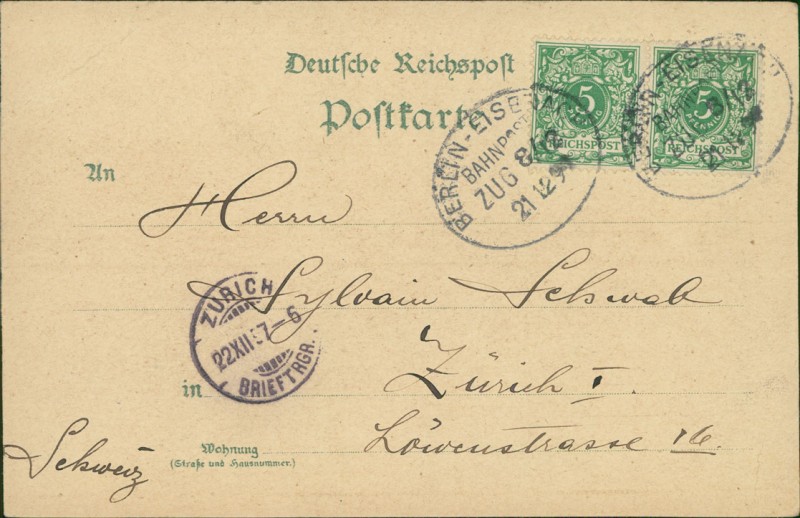 Deutsche Reichspost
Postkarte
5
REICHSPOST
5
REICHSPOST
BERLIN-EISENACH
BAHNPOST
ZUG
21 12 97
ZUG
21
An Herrn
Sylvain Schwab
in Zürich I.
Löwenstrasse 16.
Wohnung
(Straße und Hausnummer.)
Schweiz
ZÜRICH
22 XII 97-6
BRIEFTRGR.